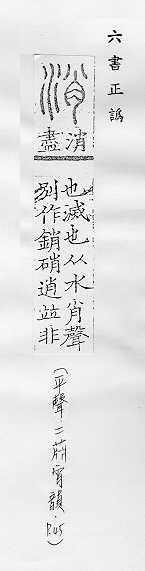 六書正譌
消
盡
也滅也从水肖聲
別作銷硝逍竝非
(平聲.二蕭宵韻.P.45)